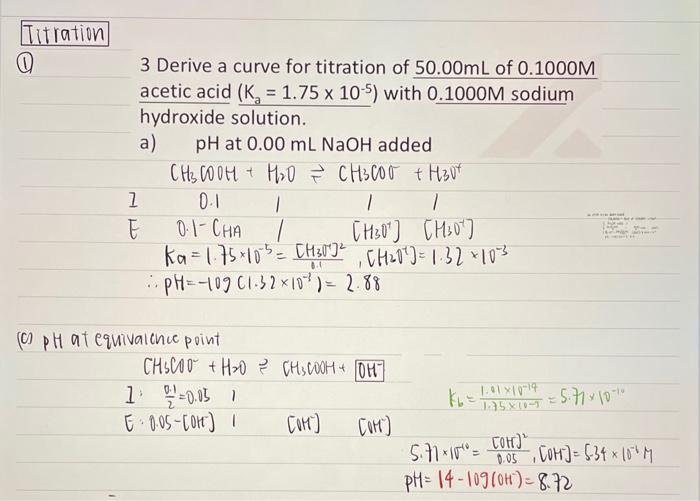 Titration
①
3 Derive a curve for titration of 50.00mL of 0.1000M
acetic acid (Kₐ = 1.75 x 10⁻⁵) with 0.1000M sodium
hydroxide solution.
a) pH at 0.00 mL NaOH added
CH₃COOH + H₂O ⇌ CH₃COO⁻ + H₃O⁺
I 0.1 / / /
E 0.1-CHA / [H₃O⁺] [H₃O⁺]
Ka = 1.75×10⁻⁵ = [H₃O⁺]²/0.1 , [H₃O⁺] = 1.32 × 10⁻³
∴ pH = -log (1.32 × 10⁻³) = 2.88
(c) pH at equivalence point
CH₃COO⁻ + H₂O ⇌ CH₃COOH + OH⁻
I: 0.1/2 = 0.05 /
E: 0.05-[OH⁻] / [OH⁻] [OH⁻]
Kb = 1.01×10⁻¹⁴/1.75×10⁻⁵ = 5.71 × 10⁻¹⁰
5.71×10⁻¹⁰ = [OH⁻]²/0.05 , [OH⁻] = 5.34 × 10⁻⁶ M
pH = 14 - log(OH⁻) = 8.72